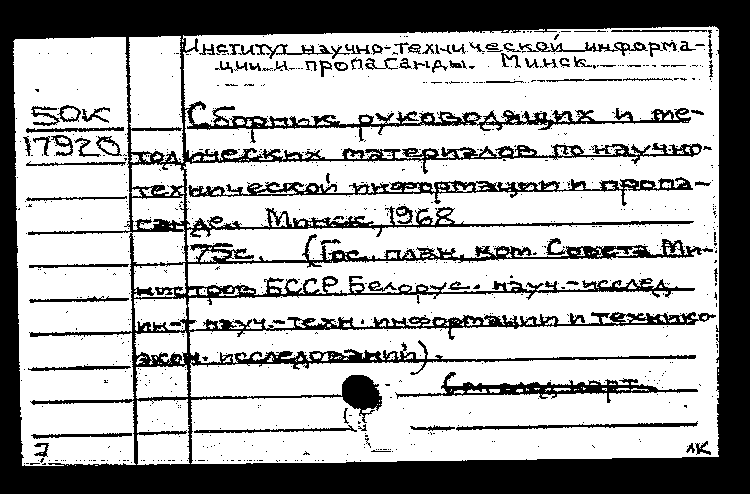 Институт научно-технической информа-
ции и пропаганды. Минск.
50К
17920
Сборник руководящих и ме-
тодических материалов по научно-
технической информации и пропа-
ганде. Минск, 1968
75с. (Гос. план. ком. Совета Ми-
нистров БССР. Белорус. науч.-исслед.
ин-т науч.-техн. информации и технико-
экон. исследований).
См. след. карт.
7
ЛК